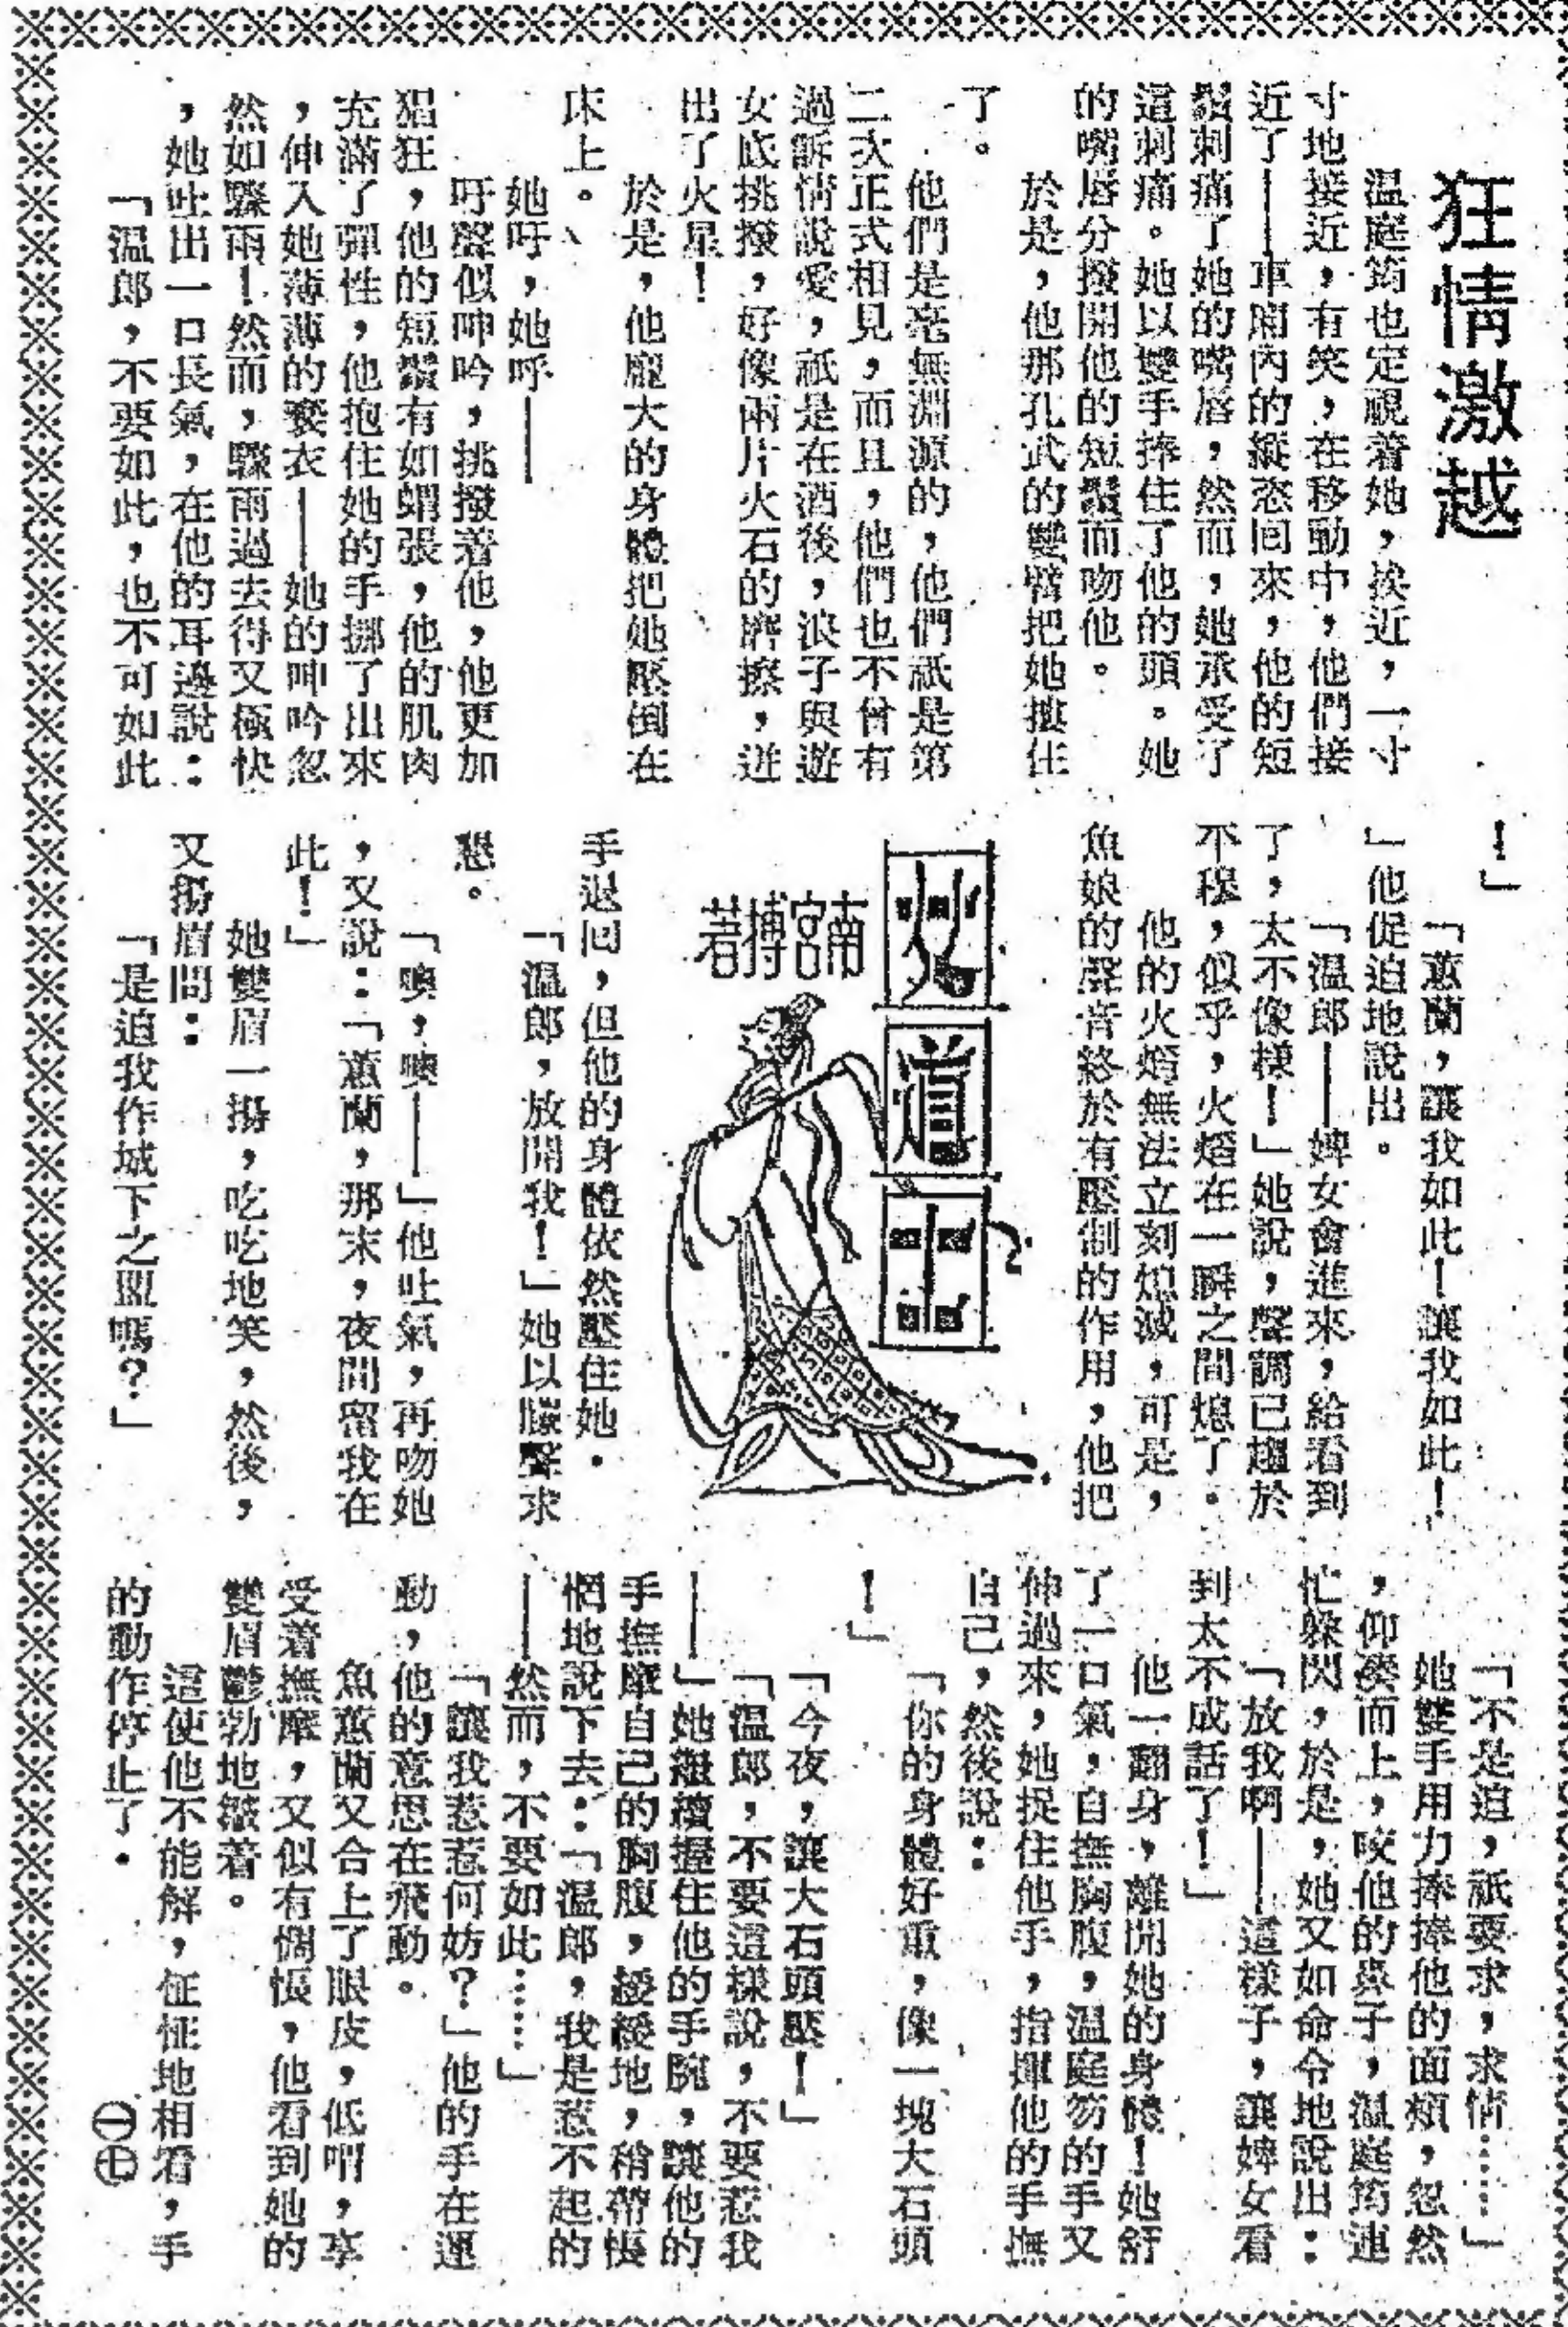 狂情激越
温庭筠也定視着她，挨近，一寸
寸地接近，有笑，在移動中，他們接
近了——車廂內的縱恣回來，他的短
鬚刺痛了她的嘴唇，然而，她承受了
這刺痛。她以雙手捧住了他的頭。她
的嘴唇分撥開他的短鬚而吻他。
於是，他那孔武的雙臂把她摟住
了。
他們是毫無淵源的，他們祇是第
二次正式相見，而且，他們也不曾有
過訴情說愛，祇是在酒後，浪子與遊
女底挑撥，好像兩片火石的磨擦，迸
出了火星！
於是，他龐大的身體把她壓倒在
床上。
她吁，她呼——
吁聲似呻吟，挑撥着他，他更加
猖狂，他的短鬚有如蝟張，他的肌肉
充滿了彈性，他抱住她的手挪了出來
，伸入她薄薄的褻衣——她的呻吟忽
然如驟雨！然而，驟雨過去得又極快
，她吐出一口長氣，在他的耳邊說：
「温郎，不要如此，也不可如此
！」
「蕙蘭，讓我如此！讓我如此！
」他促迫地說出。
「温郎——婢女會進來，給看到
了，太不像樣！」她說，聲調已趨於
不穩，似乎，火熖在一瞬之間熄了。
他的火熖無法立刻熄滅，可是，
魚娘的聲音終於有壓制的作用，他把
女道士
南宮搏著
手退回，但他的身體依然壓住她。
「温郎，放開我！」她以朦聲求
懇。
「噢，噢——」他吐氣，再吻她
，又說：「蕙蘭，那末，夜間留我在
此！」
她雙眉一揚，吃吃地笑，然後，
又揚眉問：
「是迫我作城下之盟嗎？」
「不是迫，祇要求，求情……」
她雙手用力捧捧他的面頰，忽然
，仰湊而上，咬他的鼻子，温庭筠連
忙躱閃，於是，她又如命令地說出：
「放我啊——這樣子，讓婢女看
到太不成話了！」
他一翻身，離開她的身體！她舒
了一口氣，自撫胸腹，温庭筠的手又
伸過來，她捉住他手，指揮他的手撫
自己，然後說：
「你的身體好重，像一塊大石頭
！」
「今夜，讓大石頭壓！」
「温郎，不要這樣說，不要惹我
——」她繼續握住他的手腕，讓他的
手撫摩自己的胸腹，緩緩地，稍帶悵
惘地說下去：「温郎，我是惹不起的
——然而，不要如此……」
「讓我惹惹何妨？」他的手在運
動，他的意思在飛動。
魚蕙蘭又合上了眼皮，低喟，享
受着撫摩，又似有惆悵，他看到她的
雙眉鬱勃地皺着。
這使他不能解，怔怔地相看，手
的動作停止了。
㊀㊆